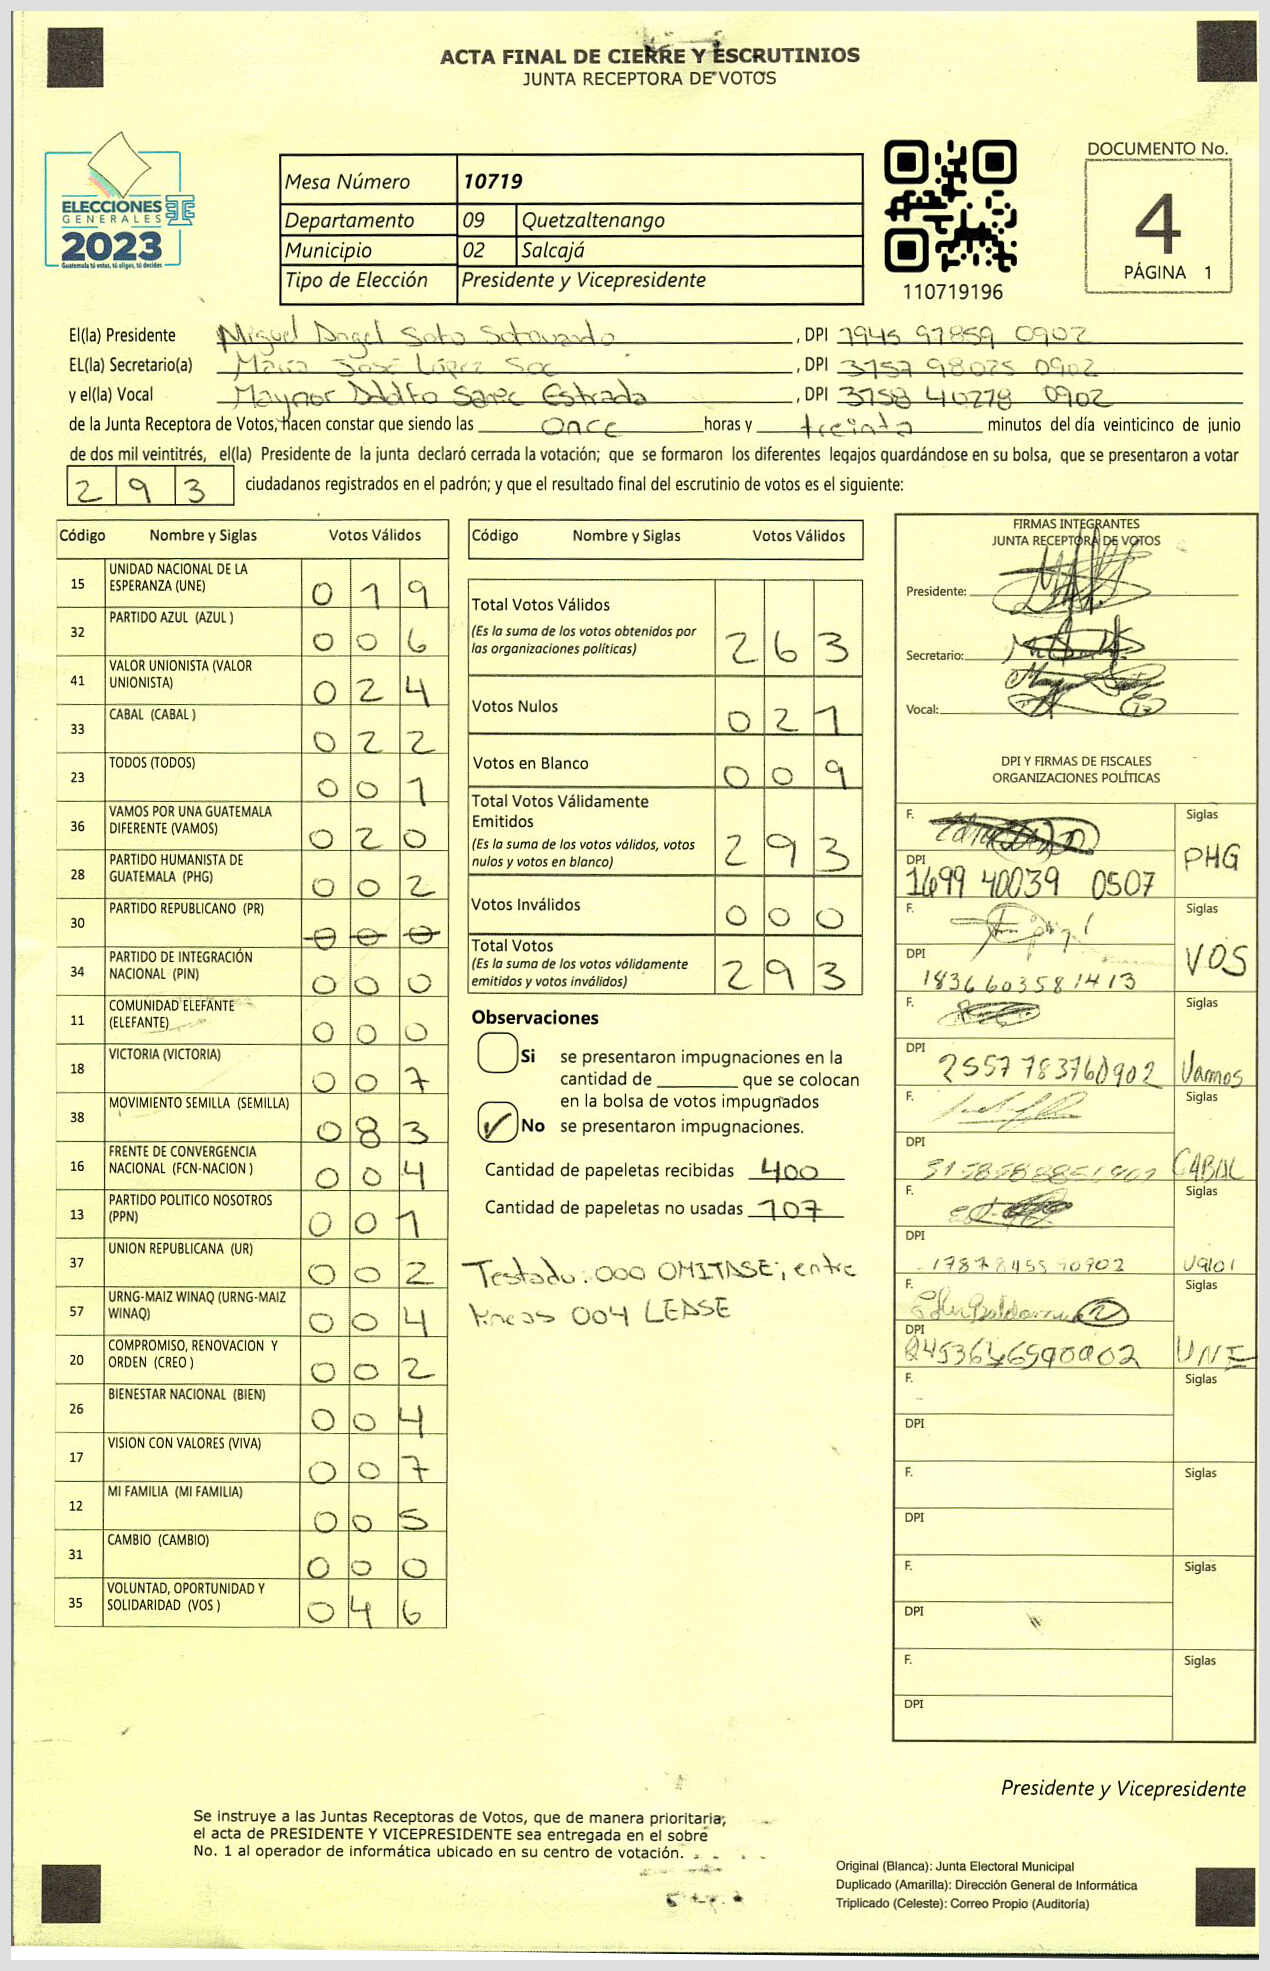 ACTA FINAL DE CIERRE Y ESCRUTINIOS
JUNTA RECEPTORA DE VOTOS
ELECCIONES
GENERALES
2023
Guatemala tú votas, tú eliges, tú decides
Mesa Número 10719
Departamento 09 Quetzaltenango
Municipio 02 Salcajá
Tipo de Elección Presidente y Vicepresidente
110719196
DOCUMENTO No.
4
PÁGINA 1
El(la) Presidente Miguel Angel Soto , DPI 1945 97859 0902
EL(la) Secretario(a) María José López Soc , DPI 3157 98025 0902
y el(la) Vocal Maynor Adolfo Estrada , DPI 3158 40278 0902
de la Junta Receptora de Votos, hacen constar que siendo las once horas y treinta minutos del día veinticinco de junio
de dos mil veintitrés, el(la) Presidente de la junta declaró cerrada la votación; que se formaron los diferentes legajos guardándose en su bolsa, que se presentaron a votar
293 ciudadanos registrados en el padrón; y que el resultado final del escrutinio de votos es el siguiente:
Código Nombre y Siglas Votos Válidos
15 UNIDAD NACIONAL DE LA ESPERANZA (UNE) 019
32 PARTIDO AZUL (AZUL ) 006
41 VALOR UNIONISTA (VALOR UNIONISTA) 024
33 CABAL (CABAL ) 022
23 TODOS (TODOS) 001
36 VAMOS POR UNA GUATEMALA DIFERENTE (VAMOS) 020
28 PARTIDO HUMANISTA DE GUATEMALA (PHG) 002
30 PARTIDO REPUBLICANO (PR) 000
34 PARTIDO DE INTEGRACIÓN NACIONAL (PIN) 000
11 COMUNIDAD ELEFANTE (ELEFANTE) 000
18 VICTORIA (VICTORIA) 007
38 MOVIMIENTO SEMILLA (SEMILLA) 083
16 FRENTE DE CONVERGENCIA NACIONAL (FCN-NACION ) 004
13 PARTIDO POLITICO NOSOTROS (PPN) 001
37 UNION REPUBLICANA (UR) 002
57 URNG-MAIZ WINAQ (URNG-MAIZ WINAQ) 004
20 COMPROMISO, RENOVACION Y ORDEN (CREO ) 002
26 BIENESTAR NACIONAL (BIEN) 004
17 VISION CON VALORES (VIVA) 007
12 MI FAMILIA (MI FAMILIA) 005
31 CAMBIO (CAMBIO) 000
35 VOLUNTAD, OPORTUNIDAD Y SOLIDARIDAD (VOS ) 046
Código Nombre y Siglas Votos Válidos
Total Votos Válidos 263
(Es la suma de los votos obtenidos por
las organizaciones políticas)
Votos Nulos 021
Votos en Blanco 009
Total Votos Válidamente
Emitidos 293
(Es la suma de los votos válidos, votos
nulos y votos en blanco)
Votos Inválidos 000
Total Votos 293
(Es la suma de los votos válidamente
emitidos y votos inválidos)
Observaciones
Si se presentaron impugnaciones en la
cantidad de ________ que se colocan
en la bolsa de votos impugnados
No se presentaron impugnaciones.
Cantidad de papeletas recibidas 400
Cantidad de papeletas no usadas 107
Testado: 000 OMITASE; entre
lineas 004 LEASE
FIRMAS INTEGRANTES
JUNTA RECEPTORA DE VOTOS
Presidente:
Secretario:
Vocal:
DPI Y FIRMAS DE FISCALES
ORGANIZACIONES POLÍTICAS
F. Siglas
DPI PHG
1699 40039 0507
F. Siglas
DPI VOS
1836603581413
F. Siglas
DPI
2557 783760902 Vamos
F. Siglas
DPI
CABAL
F. Siglas
DPI
F. Siglas
DPI
UNE
F. Siglas
DPI
F. Siglas
DPI
F. Siglas
DPI
F. Siglas
DPI
Presidente y Vicepresidente
Se instruye a las Juntas Receptoras de Votos, que de manera prioritaria,
el acta de PRESIDENTE Y VICEPRESIDENTE sea entregada en el sobre
No. 1 al operador de informática ubicado en su centro de votación.
Original (Blanca): Junta Electoral Municipal
Duplicado (Amarilla): Dirección General de Informática
Triplicado (Celeste): Correo Propio (Auditoría)